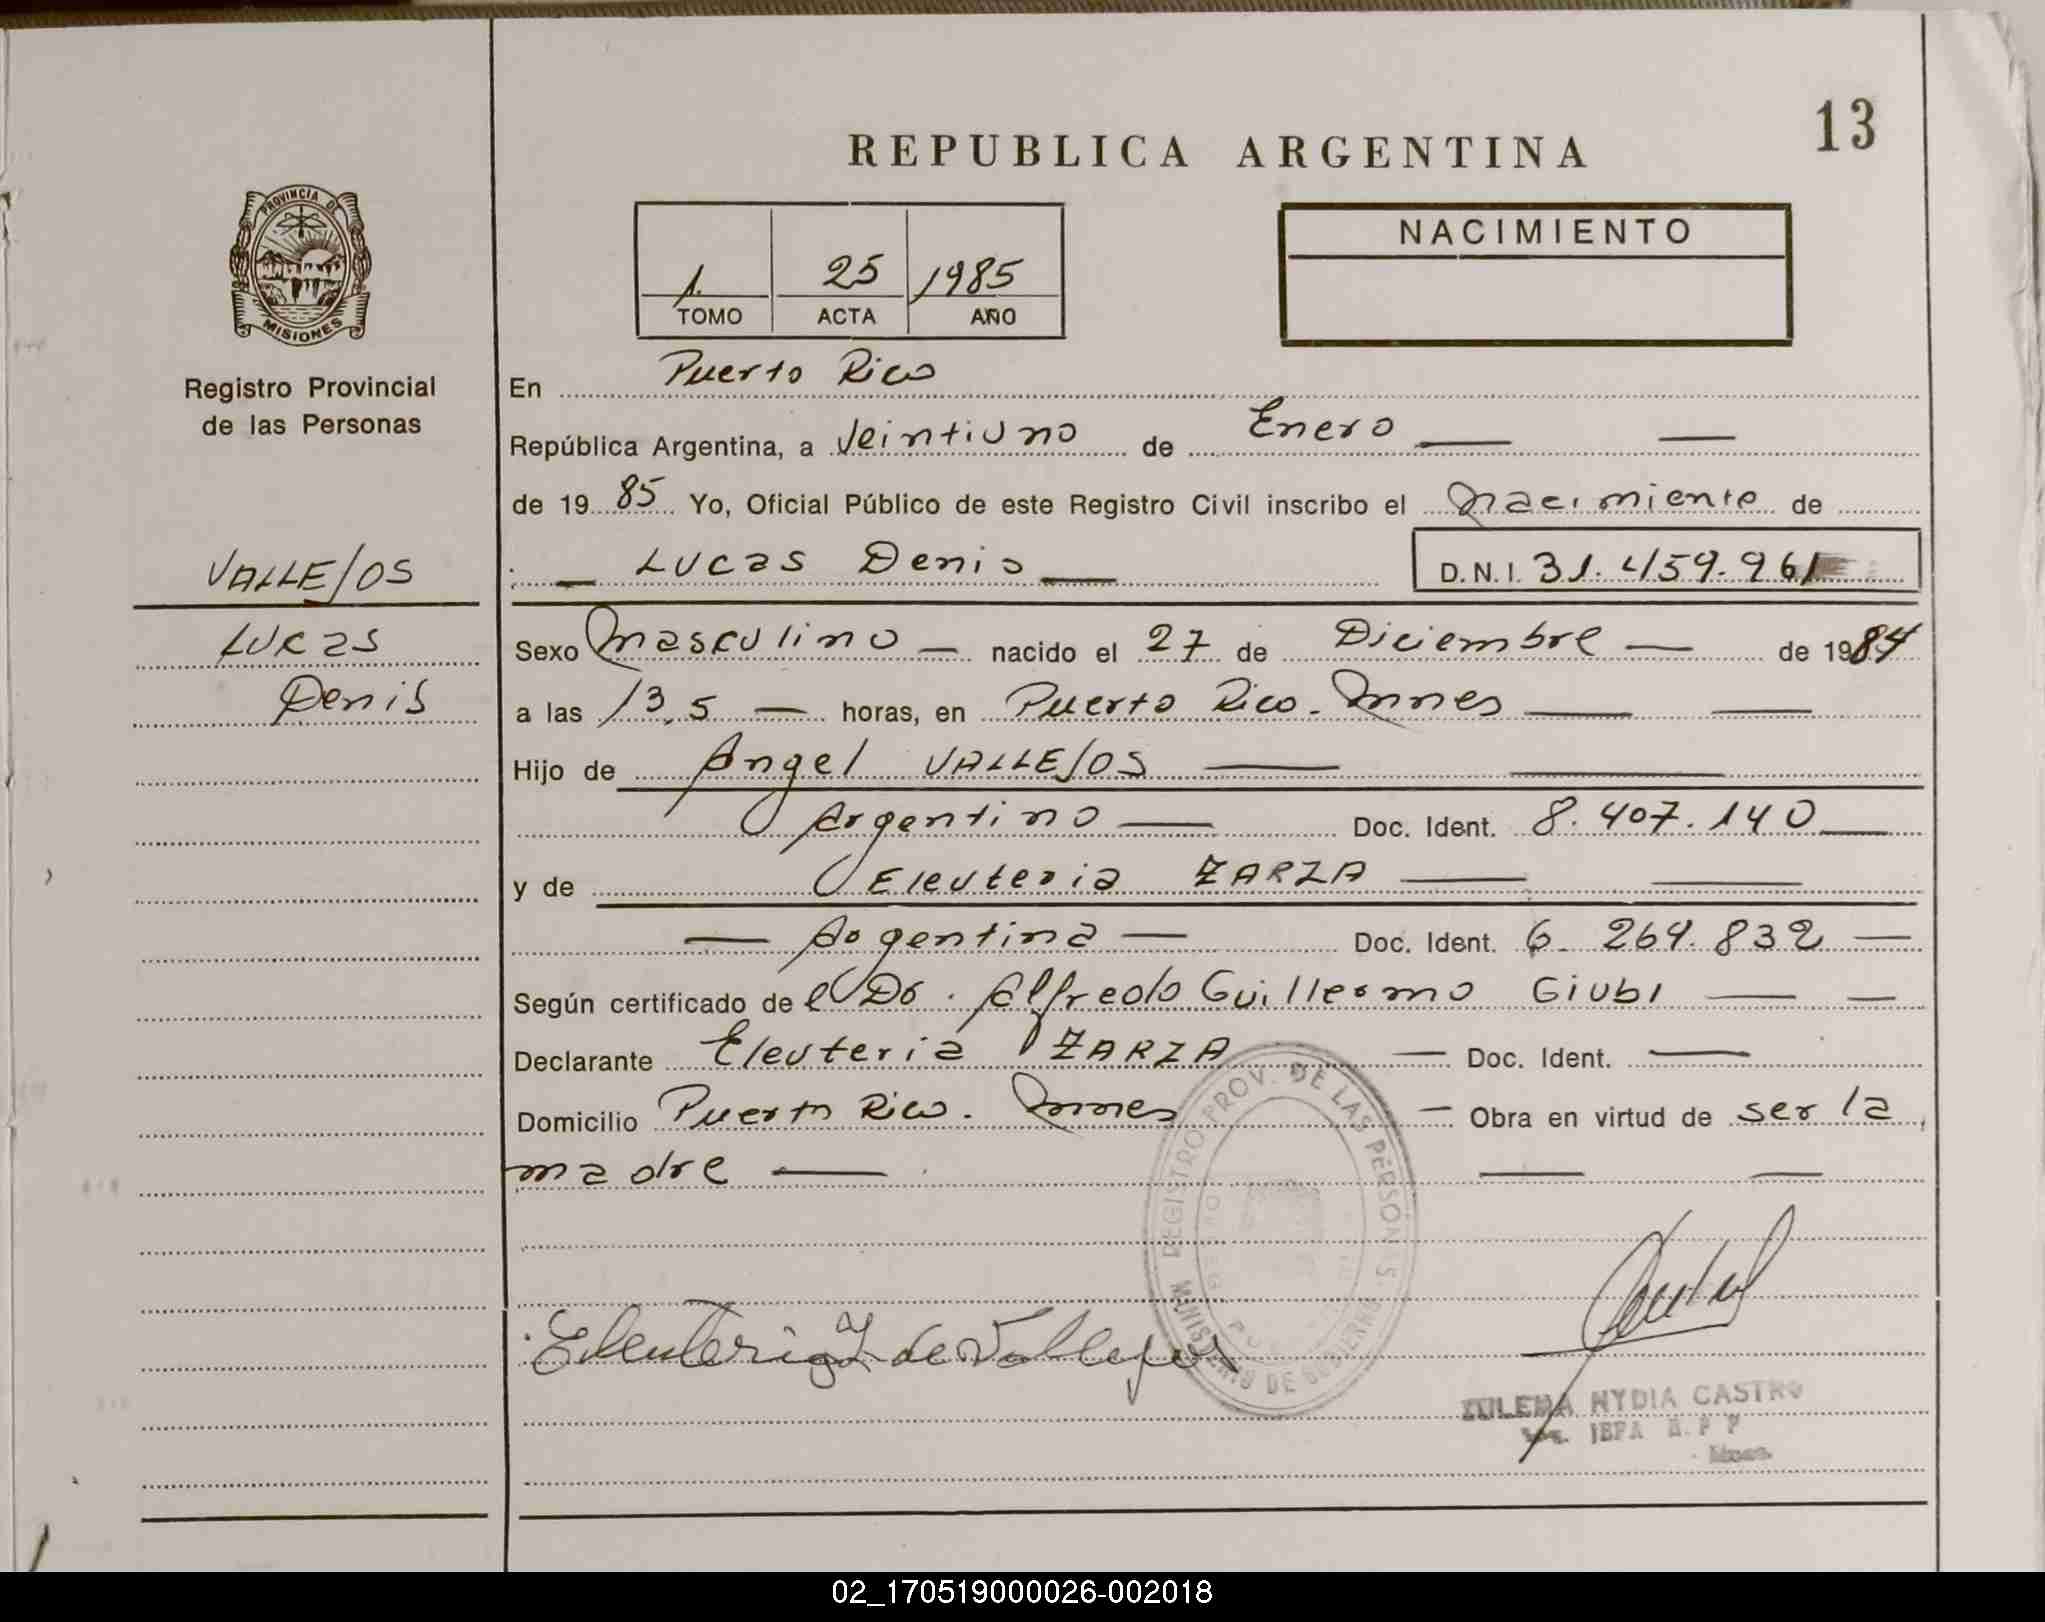 13
REPUBLICA ARGENTINA
PROVINCIA DE
MISIONES
1. 25 1985
TOMO ACTA AÑO
NACIMIENTO
Registro Provincial
de las Personas
VALLEJOS
Lucas
Denis
En Puerto Rico
República Argentina, a Veintiuno de Enero
de 19 85 Yo, Oficial Público de este Registro Civil inscribo el nacimiento de
Lucas Denis D.N.I. 31.459.961
Sexo Masculino nacido el 27 de Diciembre de 1984
a las 13,5 horas, en Puerto Rico. Mnes
Hijo de Angel VALLEJOS
Argentino Doc. Ident. 8.407.140
y de Eleuteria ZARZA
Argentina Doc. Ident. 6.269.832
Según certificado de el Dr. Alfredo Guillermo Giubi
Declarante Eleuteria ZARZA Doc. Ident.
Domicilio Puerto Rico. Mnes Obra en virtud de ser la
madre
REGISTRO PROV. DE LAS PERSONAS
MINISTERIO DE GOBIERNO
Eleuteria Z de Vallejos
ZULEMA NYDIA CASTRO
JEFA R. P. P
Mnes.
02_170519000026-002018